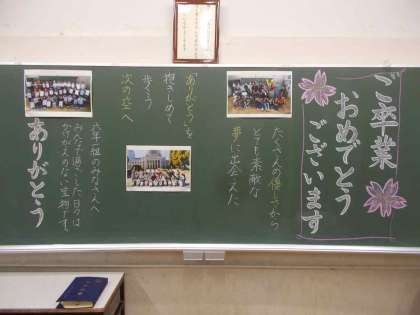 ご卒業
おめでとう
ございます
たくさんの優しさから
とても素敵な
夢に出会えた
「ありがとう」を
抱きしめて
歩こう
次の空へ
六年一組のみなさんへ
みんなで過ごした日々は
かけがえのない宝物です。
ありがとう